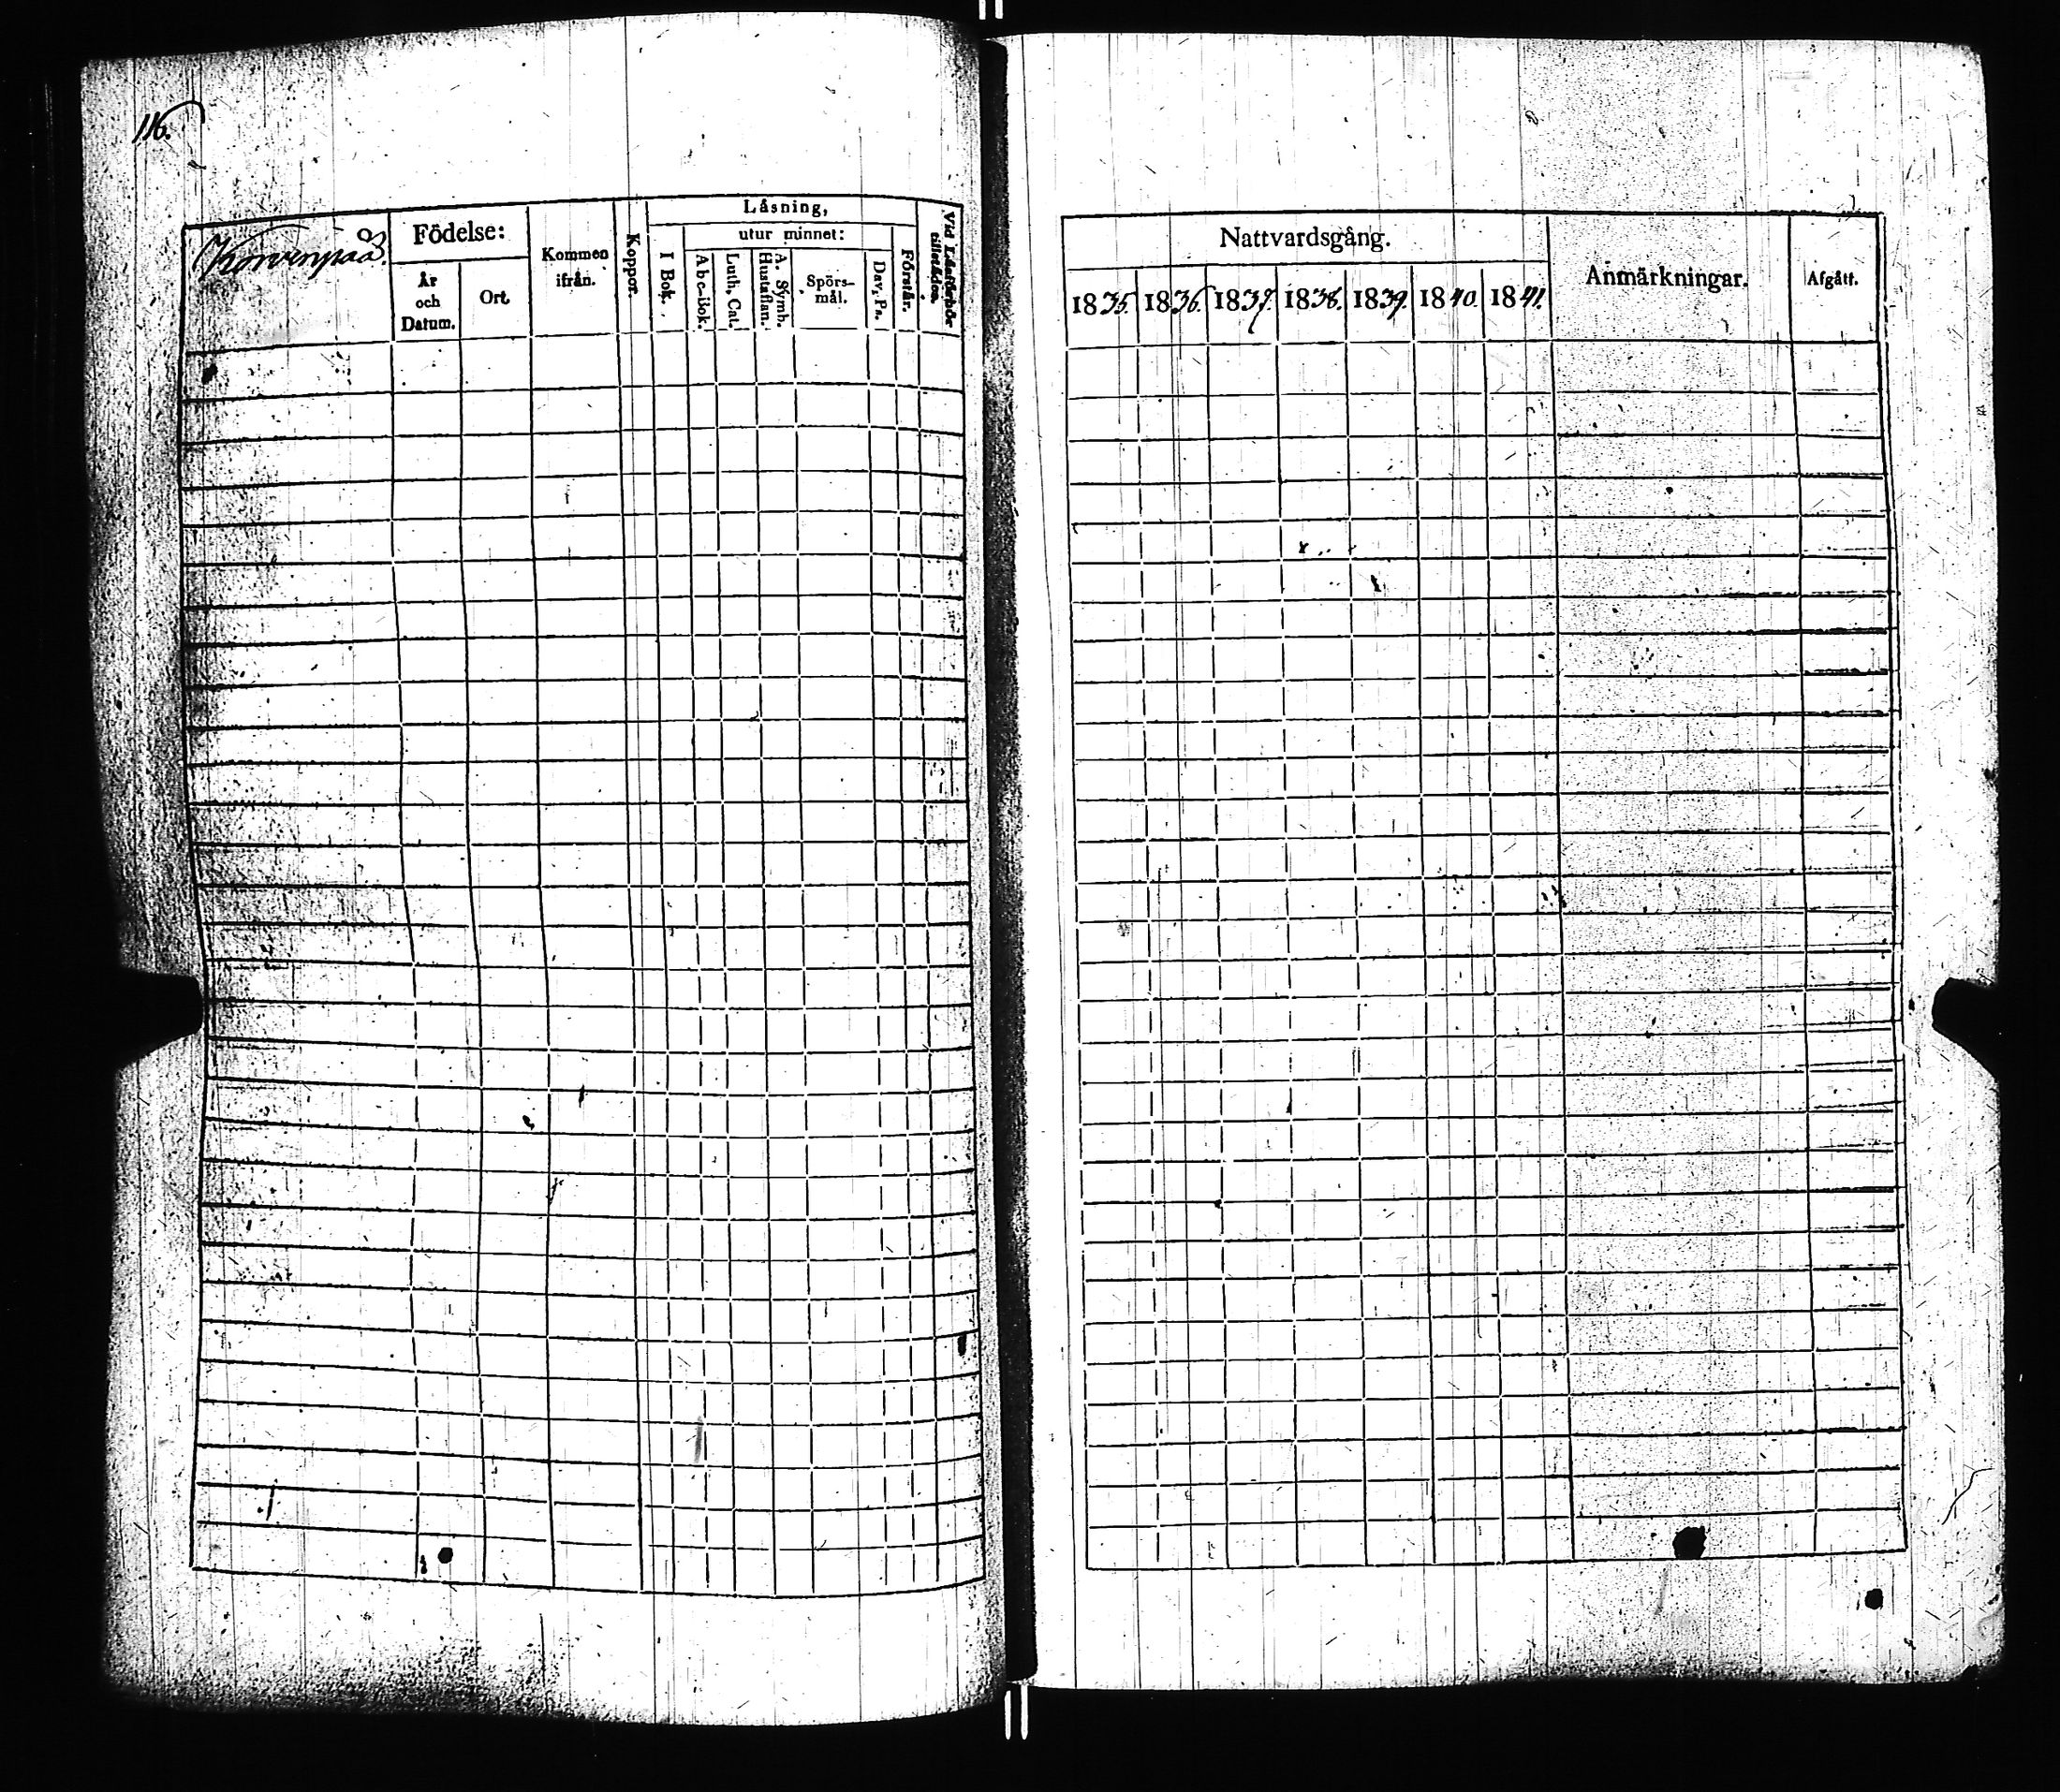 116.
Korvenpää.
Födelse:
År
och
Datum.
Ort
Kommen
ifrån.
Koppor.
Läsning,
utur minnet:
I Bok.
Abc-Bok.
Luth, Cat.
A. Symb.
Hustaflan.
Spörs-
mål.
Dav, Ps.
Förstår.
Vid Läsförhör
tillstädes.
Nattvardsgång.
1835. 1836. 1837. 1838. 1839. 1840. 1841.
Anmärkningar.
Afgått.